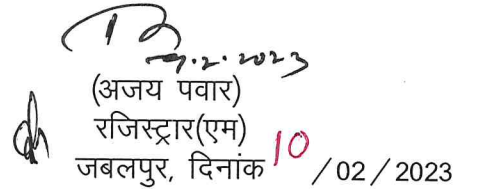 9.2.2023
(अजय पवार)
रजिस्ट्रार(एम)
जबलपुर, दिनांक 10 / 02 / 2023